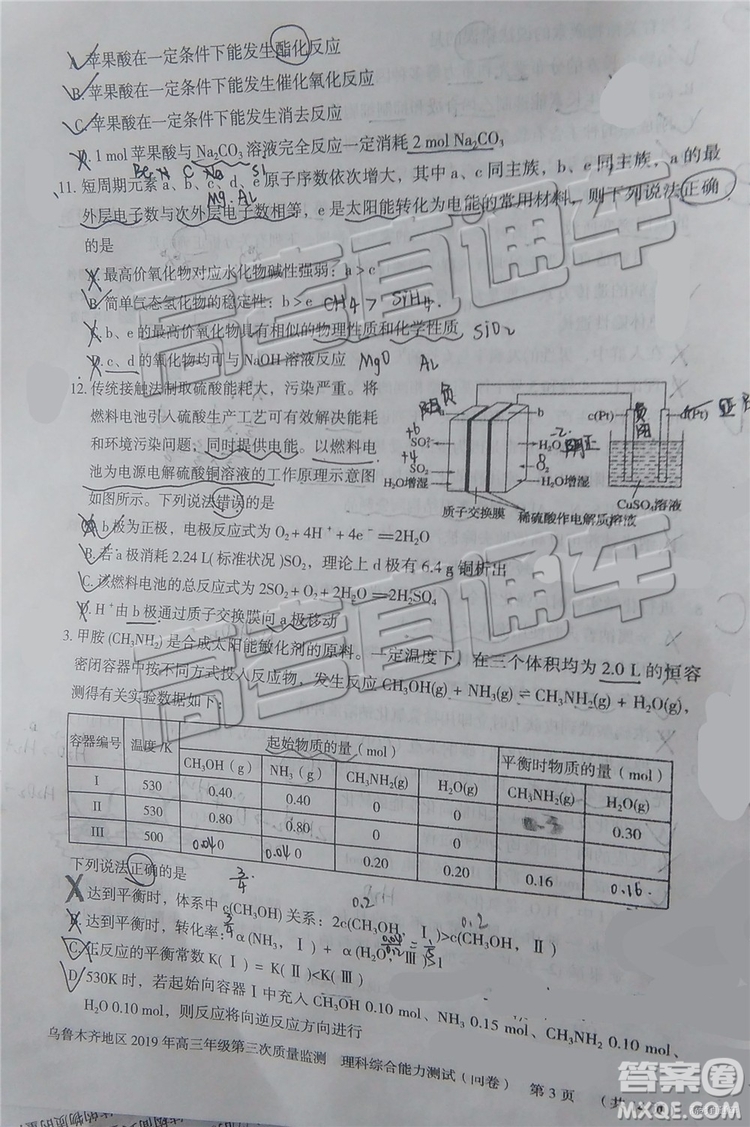 A. 苹果酸在一定条件下能发生酯化反应
B. 苹果酸在一定条件下能发生催化氧化反应
C. 苹果酸在一定条件下能发生消去反应
D. 1 mol 苹果酸与 Na₂CO₃ 溶液完全反应一定消耗 2 mol Na₂CO₃
C Na Si
Mg·AL
11. 短周期元素 a、b、c、d、e 原子序数依次增大，其中 a、c 同主族，b、e 同主族，a 的最
外层电子数与次外层电子数相等，e 是太阳能转化为电能的常用材料，则下列说法正确
的是
A. 最高价氧化物对应水化物碱性强弱：a > c
B. 简单气态氢化物的稳定性：b > e CH4 > SiH4.
C. b、e 的最高价氧化物具有相似的物理性质和化学性质 SiO2
D. c、d 的氧化物均可与 NaOH 溶液反应 MgO AL
12. 传统接触法制取硫酸能耗大，污染严重。将
燃料电池引入硫酸生产工艺可有效解决能耗
和环境污染问题，同时提供电能。以燃料电
池为电源电解硫酸铜溶液的工作原理示意图
如图所示。下列说法错误的是
负
a b c(Pt) d(Pt)
负
阴
+6
SO₃
+4
SO₂
H₂O增湿
-2
H₂O
O₂
H₂O增湿
质子交换膜
稀硫酸作电解质溶液
CuSO₄溶液
A. b 极为正极，电极反应式为 O₂ + 4H⁺ + 4e⁻ ═ 2H₂O
B. 若 a 极消耗 2.24 L（标准状况）SO₂，理论上 d 极有 6.4 g 铜析出
C. 该燃料电池的总反应式为 2SO₂ + O₂ + 2H₂O ═ 2H₂SO₄
D. H⁺ 由 b 极通过质子交换膜向 a 极移动
3. 甲胺 (CH₃NH₂) 是合成太阳能敏化剂的原料。一定温度下，在三个体积均为 2.0 L 的恒容
密闭容器中按不同方式投入反应物，发生反应 CH₃OH(g) + NH₃(g) ⇌ CH₃NH₂(g) + H₂O(g)，
测得有关实验数据如下：
容器编号 温度 /K 起始物质的量（mol） 平衡时物质的量（mol）
CH₃OH (g) NH₃ (g) CH₃NH₂(g) H₂O(g) CH₃NH₂(g) H₂O(g)
I 530 0.40 0.40 0 0 0.3 0.30
II 530 0.80 0.80 0 0
III 500 0.04 0 0.04 0 0.20 0.20 0.16 0.16
下列说法正确的是
3/4 0.2
A. 达到平衡时，体系中 c(CH₃OH) 关系：2c(CH₃OH，Ⅰ) > c(CH₃OH，Ⅱ)
3/4 0.2
B. 达到平衡时，转化率：α(NH₃，Ⅰ) + α(H₂O，Ⅲ) = 1
C. 上反应的平衡常数 K(Ⅰ) = K(Ⅱ) < K(Ⅲ)
D. 530K 时，若起始向容器Ⅰ中充入 CH₃OH 0.10 mol、NH₃ 0.15 mol、CH₃NH₂ 0.10 mol、
H₂O 0.10 mol，则反应将向逆反应方向进行
乌鲁木齐地区 2019 年高三年级第三次质量监测 理科综合能力测试（问卷） 第 3 页 （共
高考直通车
高考直通车
答案圈
MXQE.COM